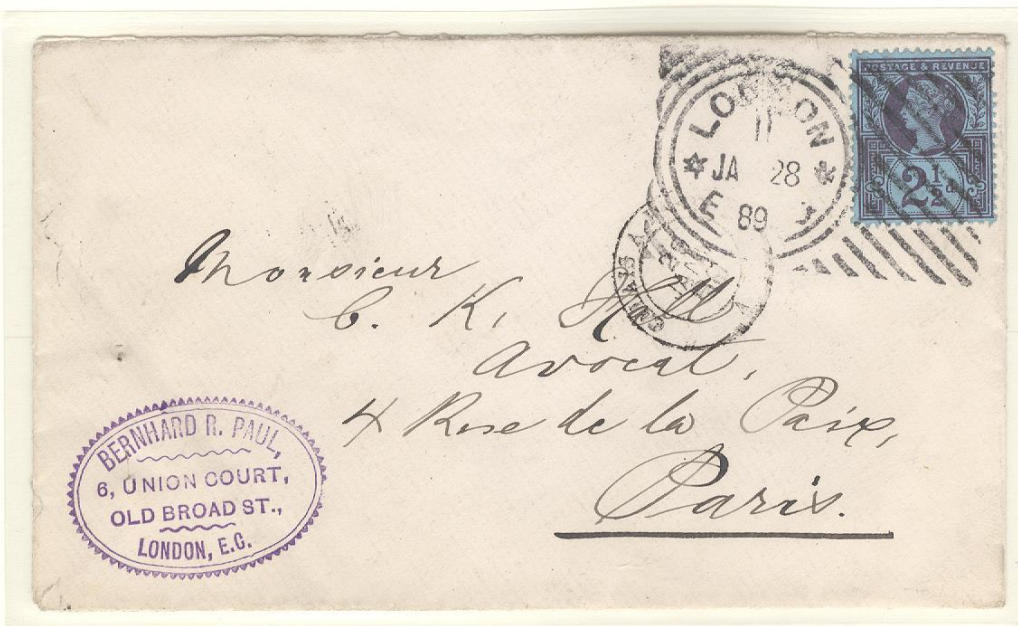 POSTAGE & REVENUE
2½d
LONDON
11
JA 28
E 89
CALAIS A
Monsieur
C. K. Hall
Avocat,
4 Rue de la Paix,
Paris.
BERNHARD R. PAUL,
6, UNION COURT,
OLD BROAD ST.,
LONDON, E.C.